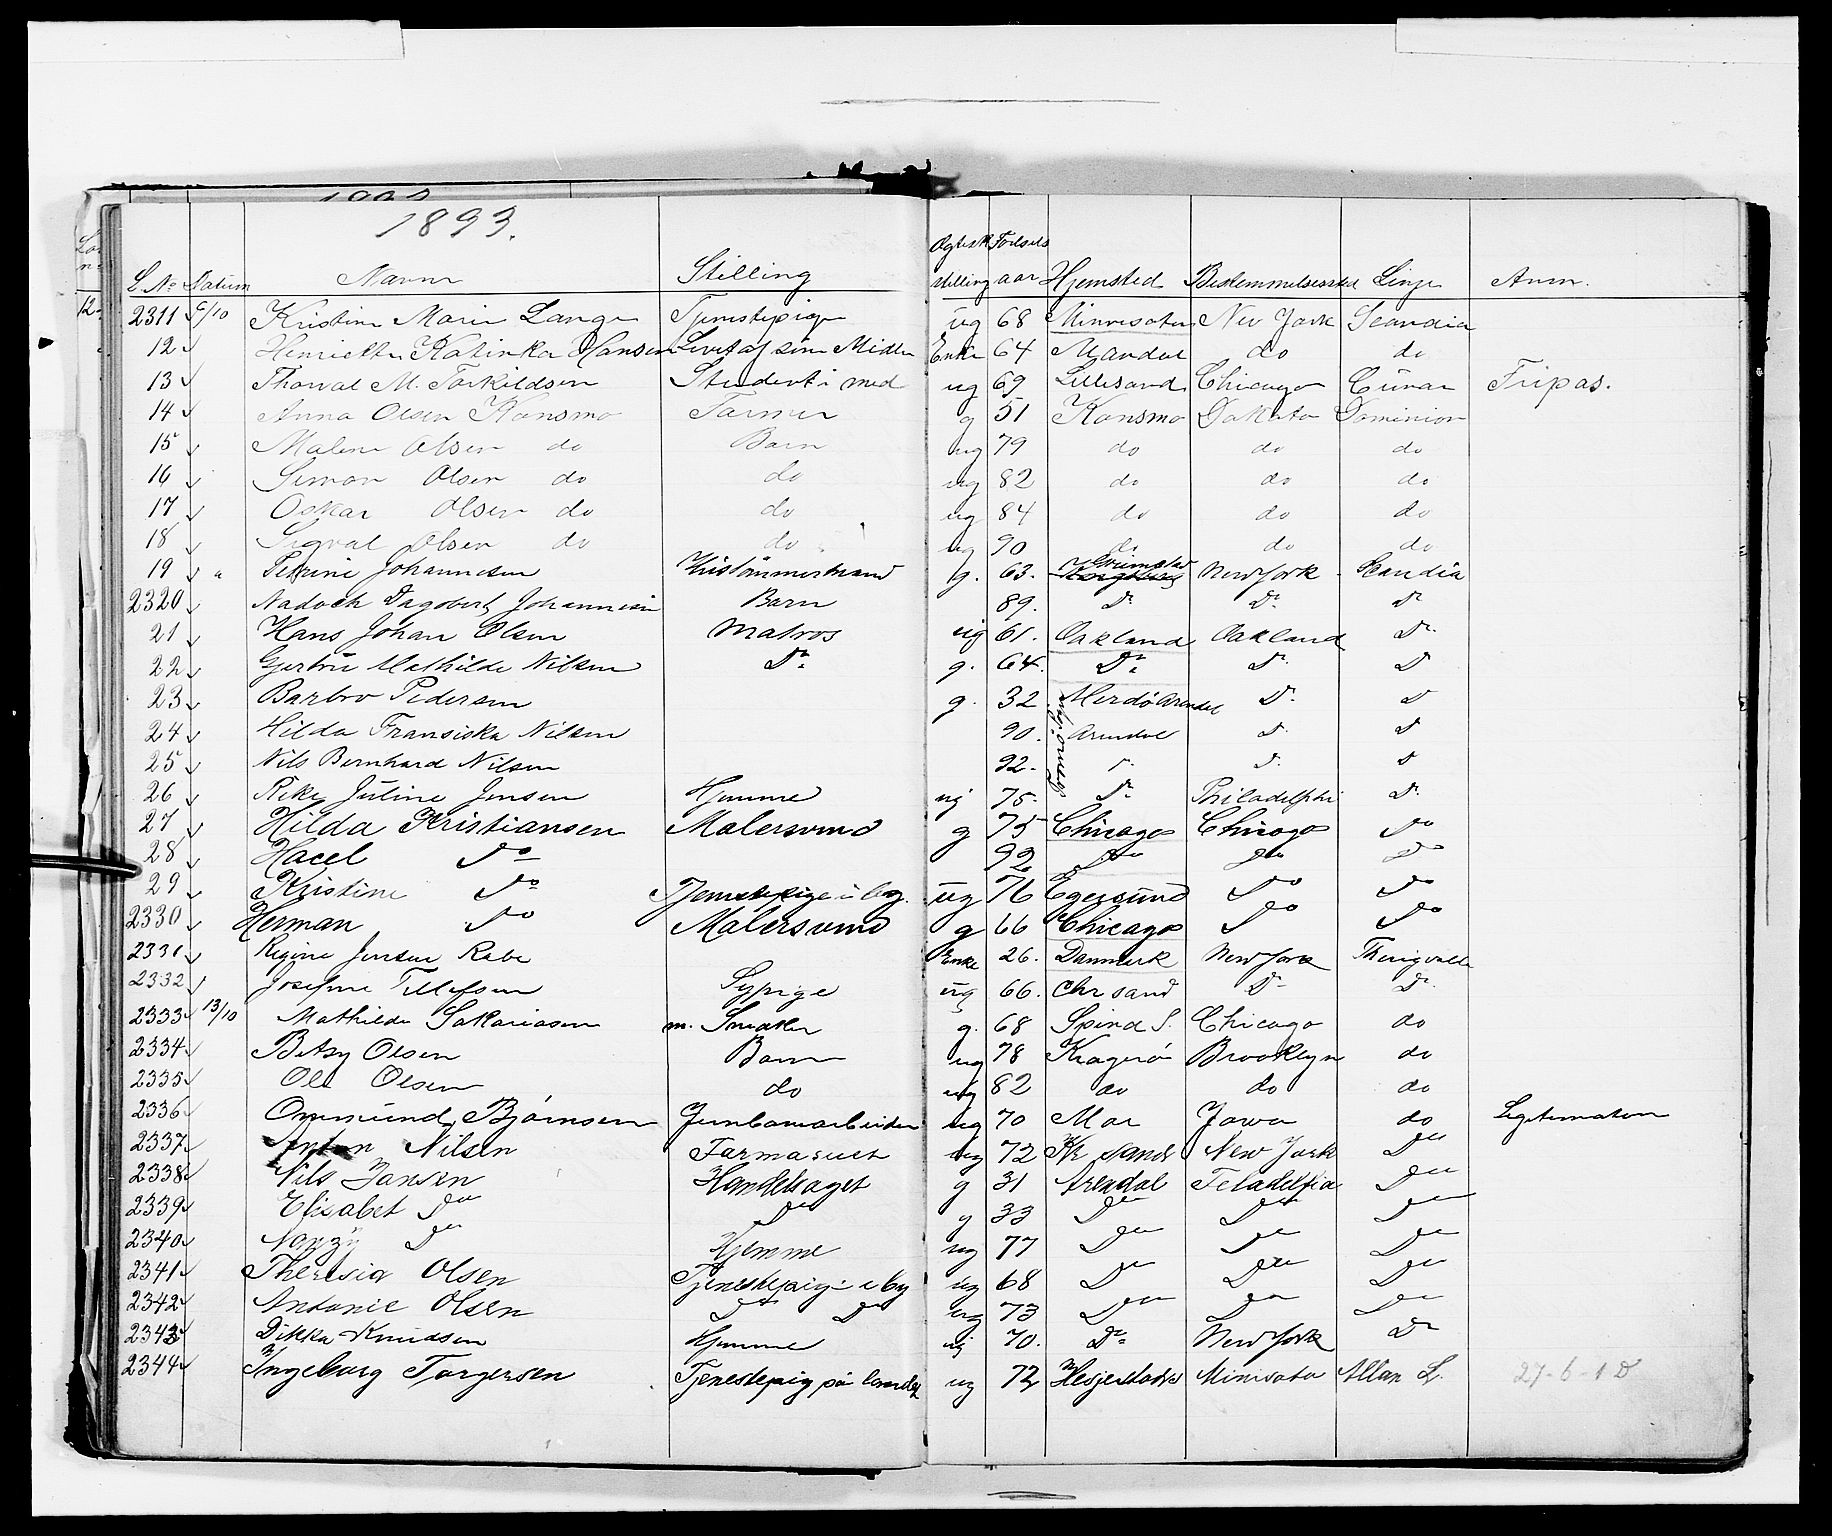 1893.
L No Datum Navn Stilling Ægtesk. stilling Fødsels aar Hjemsted Bestemmelsessted Linje Anm.
2311 6/10 Kristine Marie Lange Tjenestepige ug 68 Minnesota New York Scandia
12 Henriette Katinka Hansen Levet af sine Midler Enke 64 Mandal do do
13 Thorval M. Torkildsen Student i med ug 69 Lillesand Chicago Cunar Fripas.
14 Anna Olsen Konsmo Farmer g 51 Konsmo Dakota Dominion
15 Malene Olsen do Barn ug 79 do do do
16 Simon Olsen do do ug 82 do do do
17 Oskar Olsen do do ug 84 do do do
18 Sigval Olsen do do ug 90 do do do
19 " Terine Johannesen g. 63. Grimstad New York Scandia
2320 Nadock Dagobert Johannesen Barn 89. Do Do Do
21 Hans Johan Olsen Matros ug 61. Oakland Oakland Do
22 Gjertrü Mathilde Nilsen Do g. 64. Do Do D
23 Barbro Pedersen g. 32. Merdö Arendal Do D
24 Hilda Fransiska Nilsen 90. Arendal D D
25 Nils Bernhard Nilsen 92. D D
26 Rike Jütine Jensen Hjemme ug 75. Do Philadelphi Do
27 Hilda Kristiansen Malersvend g 75 Chicago Chicago Do
28 Hacel Do 92 Do Do Do
29 Kristine Do Tjenestepige i by. ug 76 Egersund Do Do
2330 Herman Do Malersvend g 66 Chicago Do Do
2331 Regine Jensen Rabe Enke 26. Danmark New York Thingvalla
2332 Josefine Tellefsen Sypige ug 66. Chrsand Do Do
2333 13/10 Mathilde Sakariasen m. Snedker g. 68 Spind S. Chicago do
2334 Betzy Olsen Barn ug 78 Kragerö Brooklyn do
2335 Ole Olsen do ug 82 do do do
2336 Omund Bjørnsen Jernbanearbeider ug 70 Mar Jowa do Legitimation
2337 Anton Nilsen Farmasuet ug 72 Kr sand New York Do
2338 Nils Jansen g 31 Arendal Feladelfia Do
2339 Elisabet Do Do g 33 Do Do Do
2340 Nozzy Do Hjemme ug 77 Do Do Do
2341 Theresia Olsen Tjenestepige i by ug 68 Do Do Do
2342 Antonie Olsen Do Do ug 73 Do Do Do
2343 Dikka Knudsen Hjemme ug 70. Do New York Do
2344 Ingeborg Torgersen Tjenestepig på landet ug 72 Minisota Allan L. 27-6-1 D